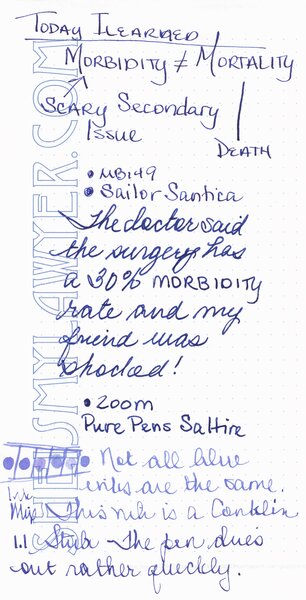 TODAY I LEARNED
MORBIDITY ≠ MORTALITY
SCARY SECONDARY
ISSUE
DEATH
• MB149
• Sailor Santica
The doctor said
the surgery has
a 30% MORBIDITY
rate and my
friend was
shocked!
• 200m
Pure Pens Saltire
Not all blue
inks are the same.
This nib is a Conklin
1.1 Stub - The pen dries
out rather quickly.
SMYLAWYER.COM